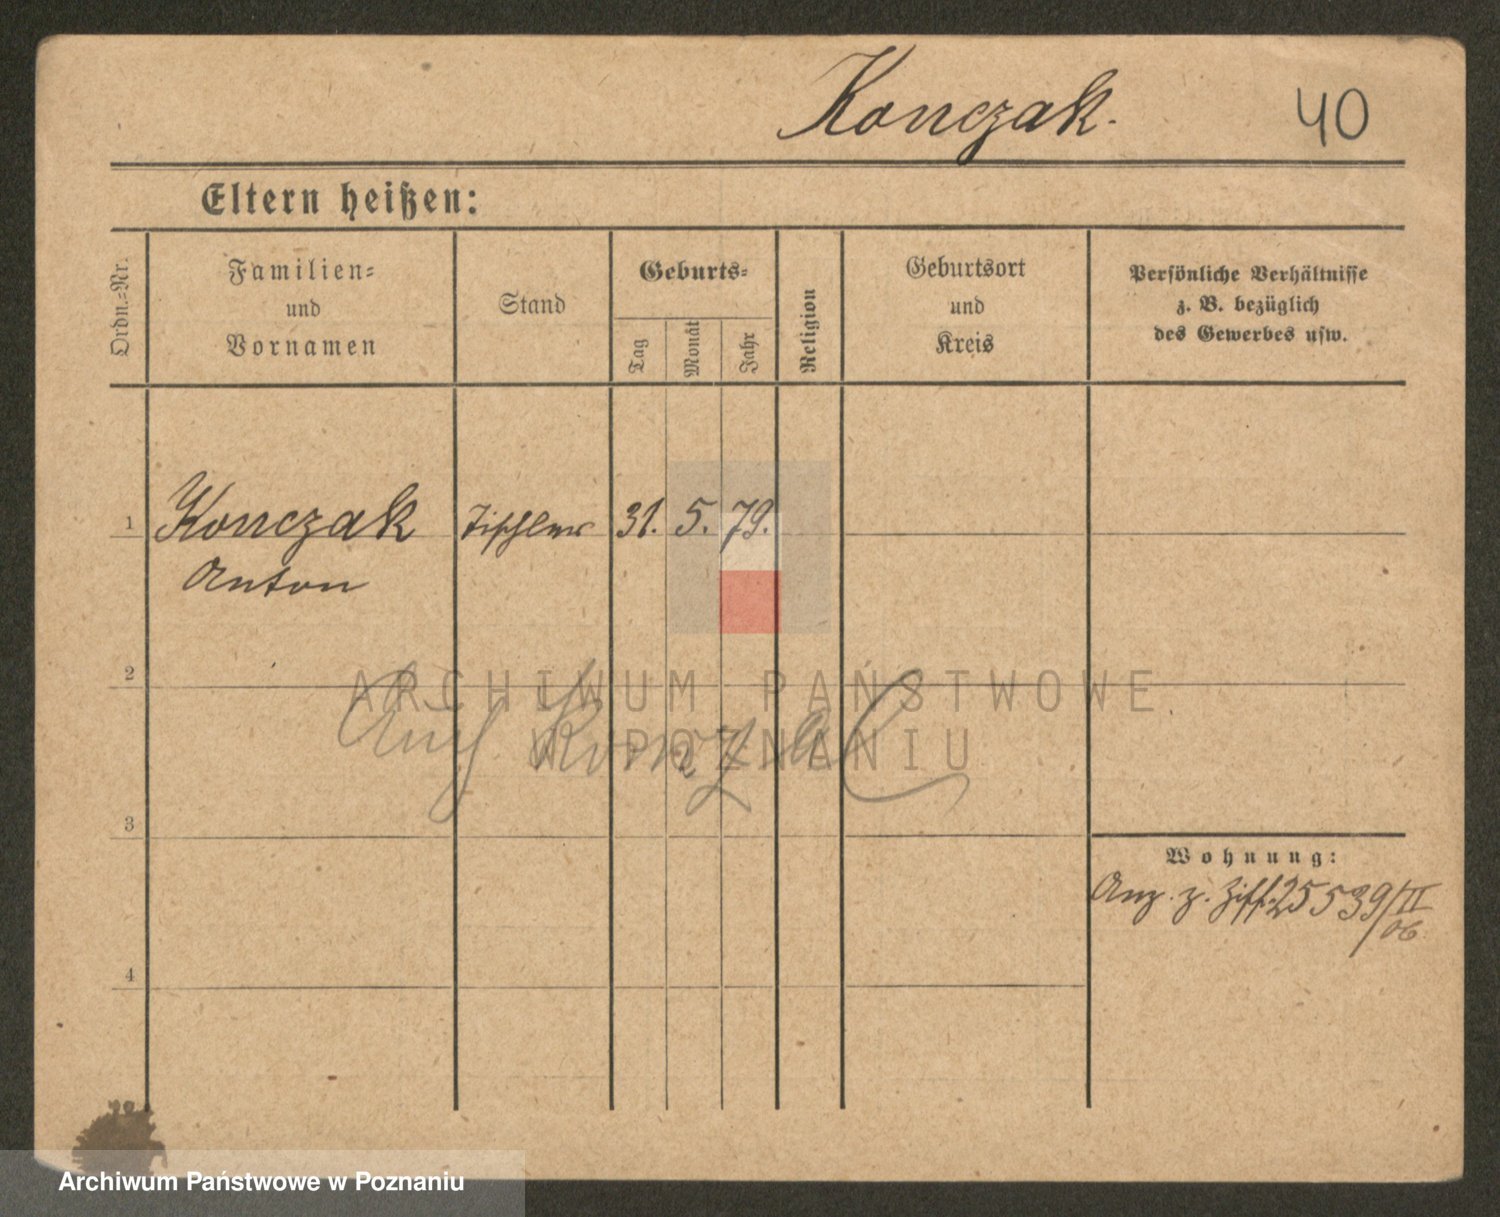 Konczak.
40
Eltern heißen:
Ordn.-Nr.
Familien-
und
Vornamen
Stand
Geburts-
Tag
Monat
Jahr
Religion
Geburtsort
und
Kreis
Persönliche Verhältnisse
z. B. bezüglich
des Gewerbes usw.
1 Konczak Tischler 31. 5. 79.
Anton
2
ARCHIWUM PAŃSTWOWE
W POZNANIU
Konzak
3
Wohnung:
Anz. z. Ziff. 25539/II
06.
4
Archiwum Państwowe w Poznaniu